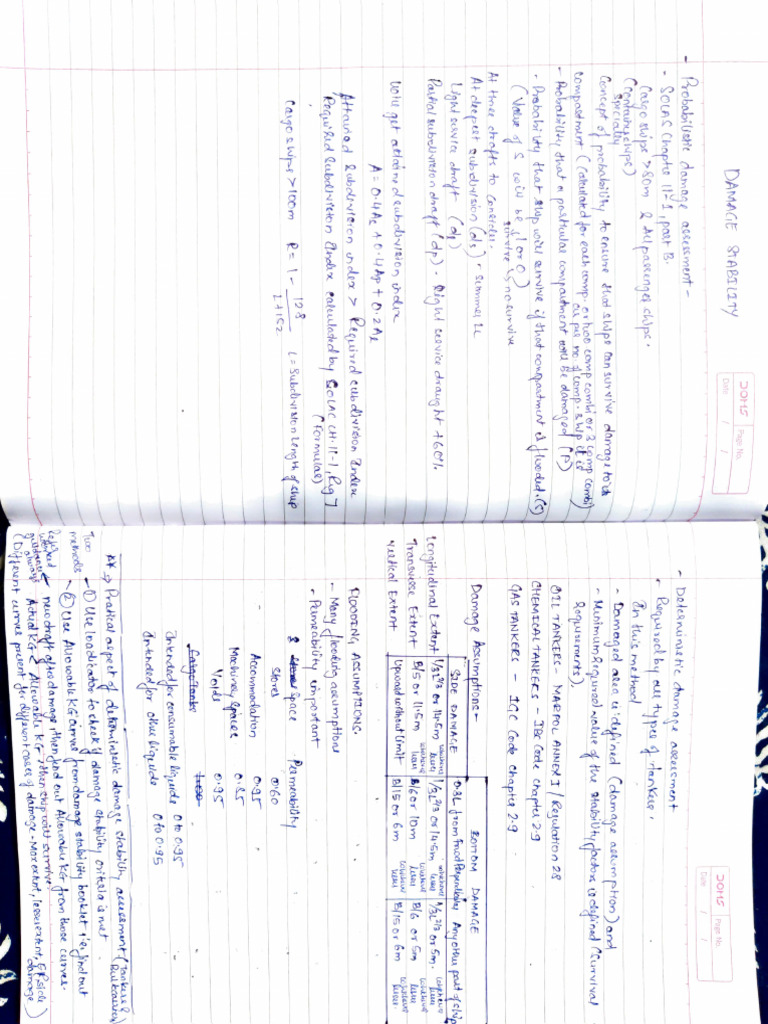 DOMS Page No.
Date / /
DAMAGE STABILITY
- Probabilistic damage assessment -
- SOLAS Chapter II-1, part B.
Cargo ships > 80m & All passenger ships.
(Container ships)
specially
Concept of probability to ensure that ships can survive damage to a
compartment (calculated for each comp. or two comp combi or 3 comp combi)
as per no. of comp. ship
- Probability that a particular compartment will be damaged (P)
- Probability that ship will survive if that compartment is flooded. (S)
(Value of S will be 1 or 0)
survive no survive
At three drafts to consider.
At deepest subdivision (ds) - summer
Light service draft (dl)
Partial subdivision draft (dp) - light service draught + 60%.
We get attained subdivision index
A = 0.4As + 0.4Ap + 0.2Al
Attained Subdivision index > Required subdivision Index
Required Subdivision Index calculated by SOLAS CH-II-1, Reg 7
(Formulae)
Cargo ships > 100m R = 1 - 128
L+152
L = Subdivision length of ship
DOMS Page No.
Date / /
- Deterministic damage assessment
- Required by all types of tankers.
In this method
- Damaged area is defined (damage assumption) and
- Minimum required value of the stability factors is defined (Survival
Requirements).
OIL TANKERS - MARPOL ANNEX I / Regulation 28
CHEMICAL TANKERS - IBC Code chapter 2.9
GAS TANKERS - IGC Code chapter 2.9
Damage Assumptions -
SIDE DAMAGE BOTTOM DAMAGE
0.3L from Fwd Perpendicular Any other part of ship
Longitudinal Extent 1/3L2/3 or 14.5m whichever less 1/3L2/3 or 14.5m whichever less 1/3L2/3 or 5m. whichever less
Transverse Extent B/5 or 11.5m whichever less B/6 or 10m whichever less B/6 or 5m whichever less
Vertical Extent Upward without limit B/15 or 6m whichever less B/15 or 6m whichever less
FLOODING ASSUMPTIONS.
- Many flooding assumptions
- Permeability important
Space Permeability
Stores 0.60
Accommodation 0.95
Machinery Spaces 0.85
Voids 0.95
Intended for consumable liquids 0 to 0.95
Intended for other liquids 0 to 0.95
** → Practical aspect of deterministic damage stability assessment (Tankers &
Bulkcarriers)
Two methods → ① Use loadicator to check if damage stability criteria is met.
② Use Allowable KG curves from damage stability booklet i.e. find out
new draft after damage then find out Allowable KG from those curves.
Actual KG < Allowable KG then ship will survive.
(Different curves present for different cases of damage - More extent, less extent, ER side
damage)